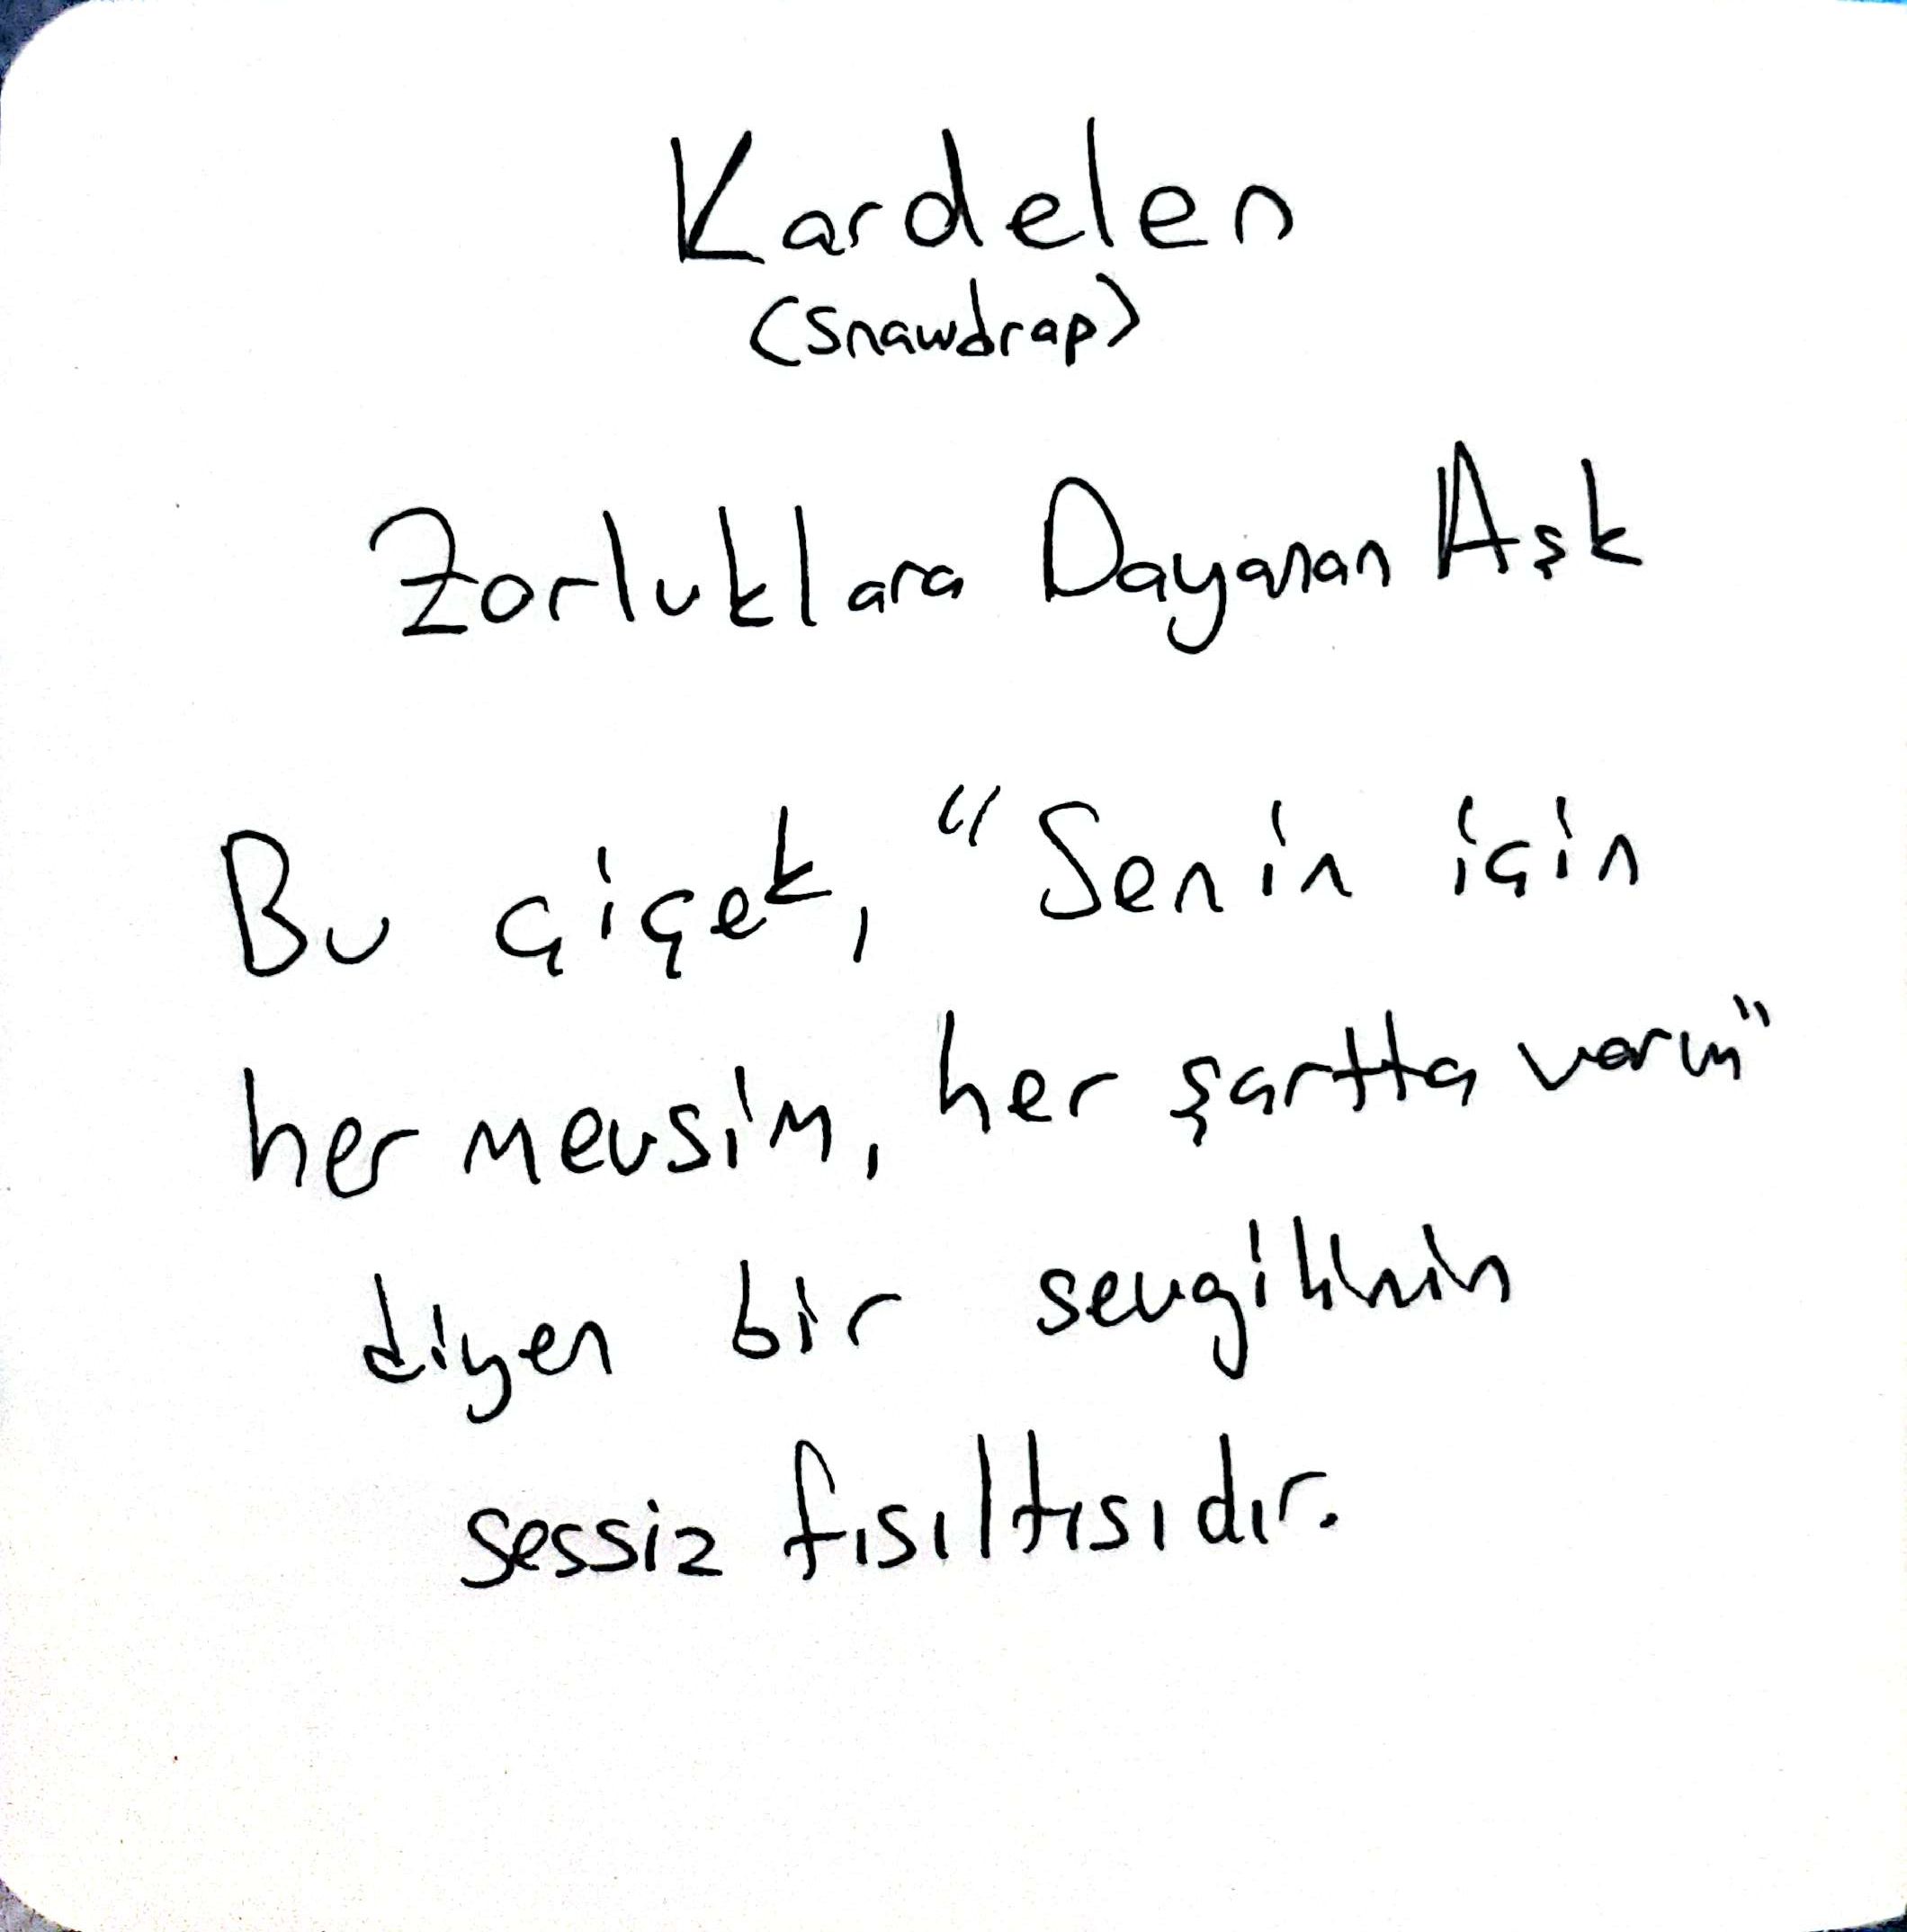 Kardelen
(snawdrap)
Zorluklara Dayanan Aşk
Bu çiçek, "Senin için
her mevsim, her şartta varım"
diyen bir sevgilinin
sessiz fısıltısıdır.